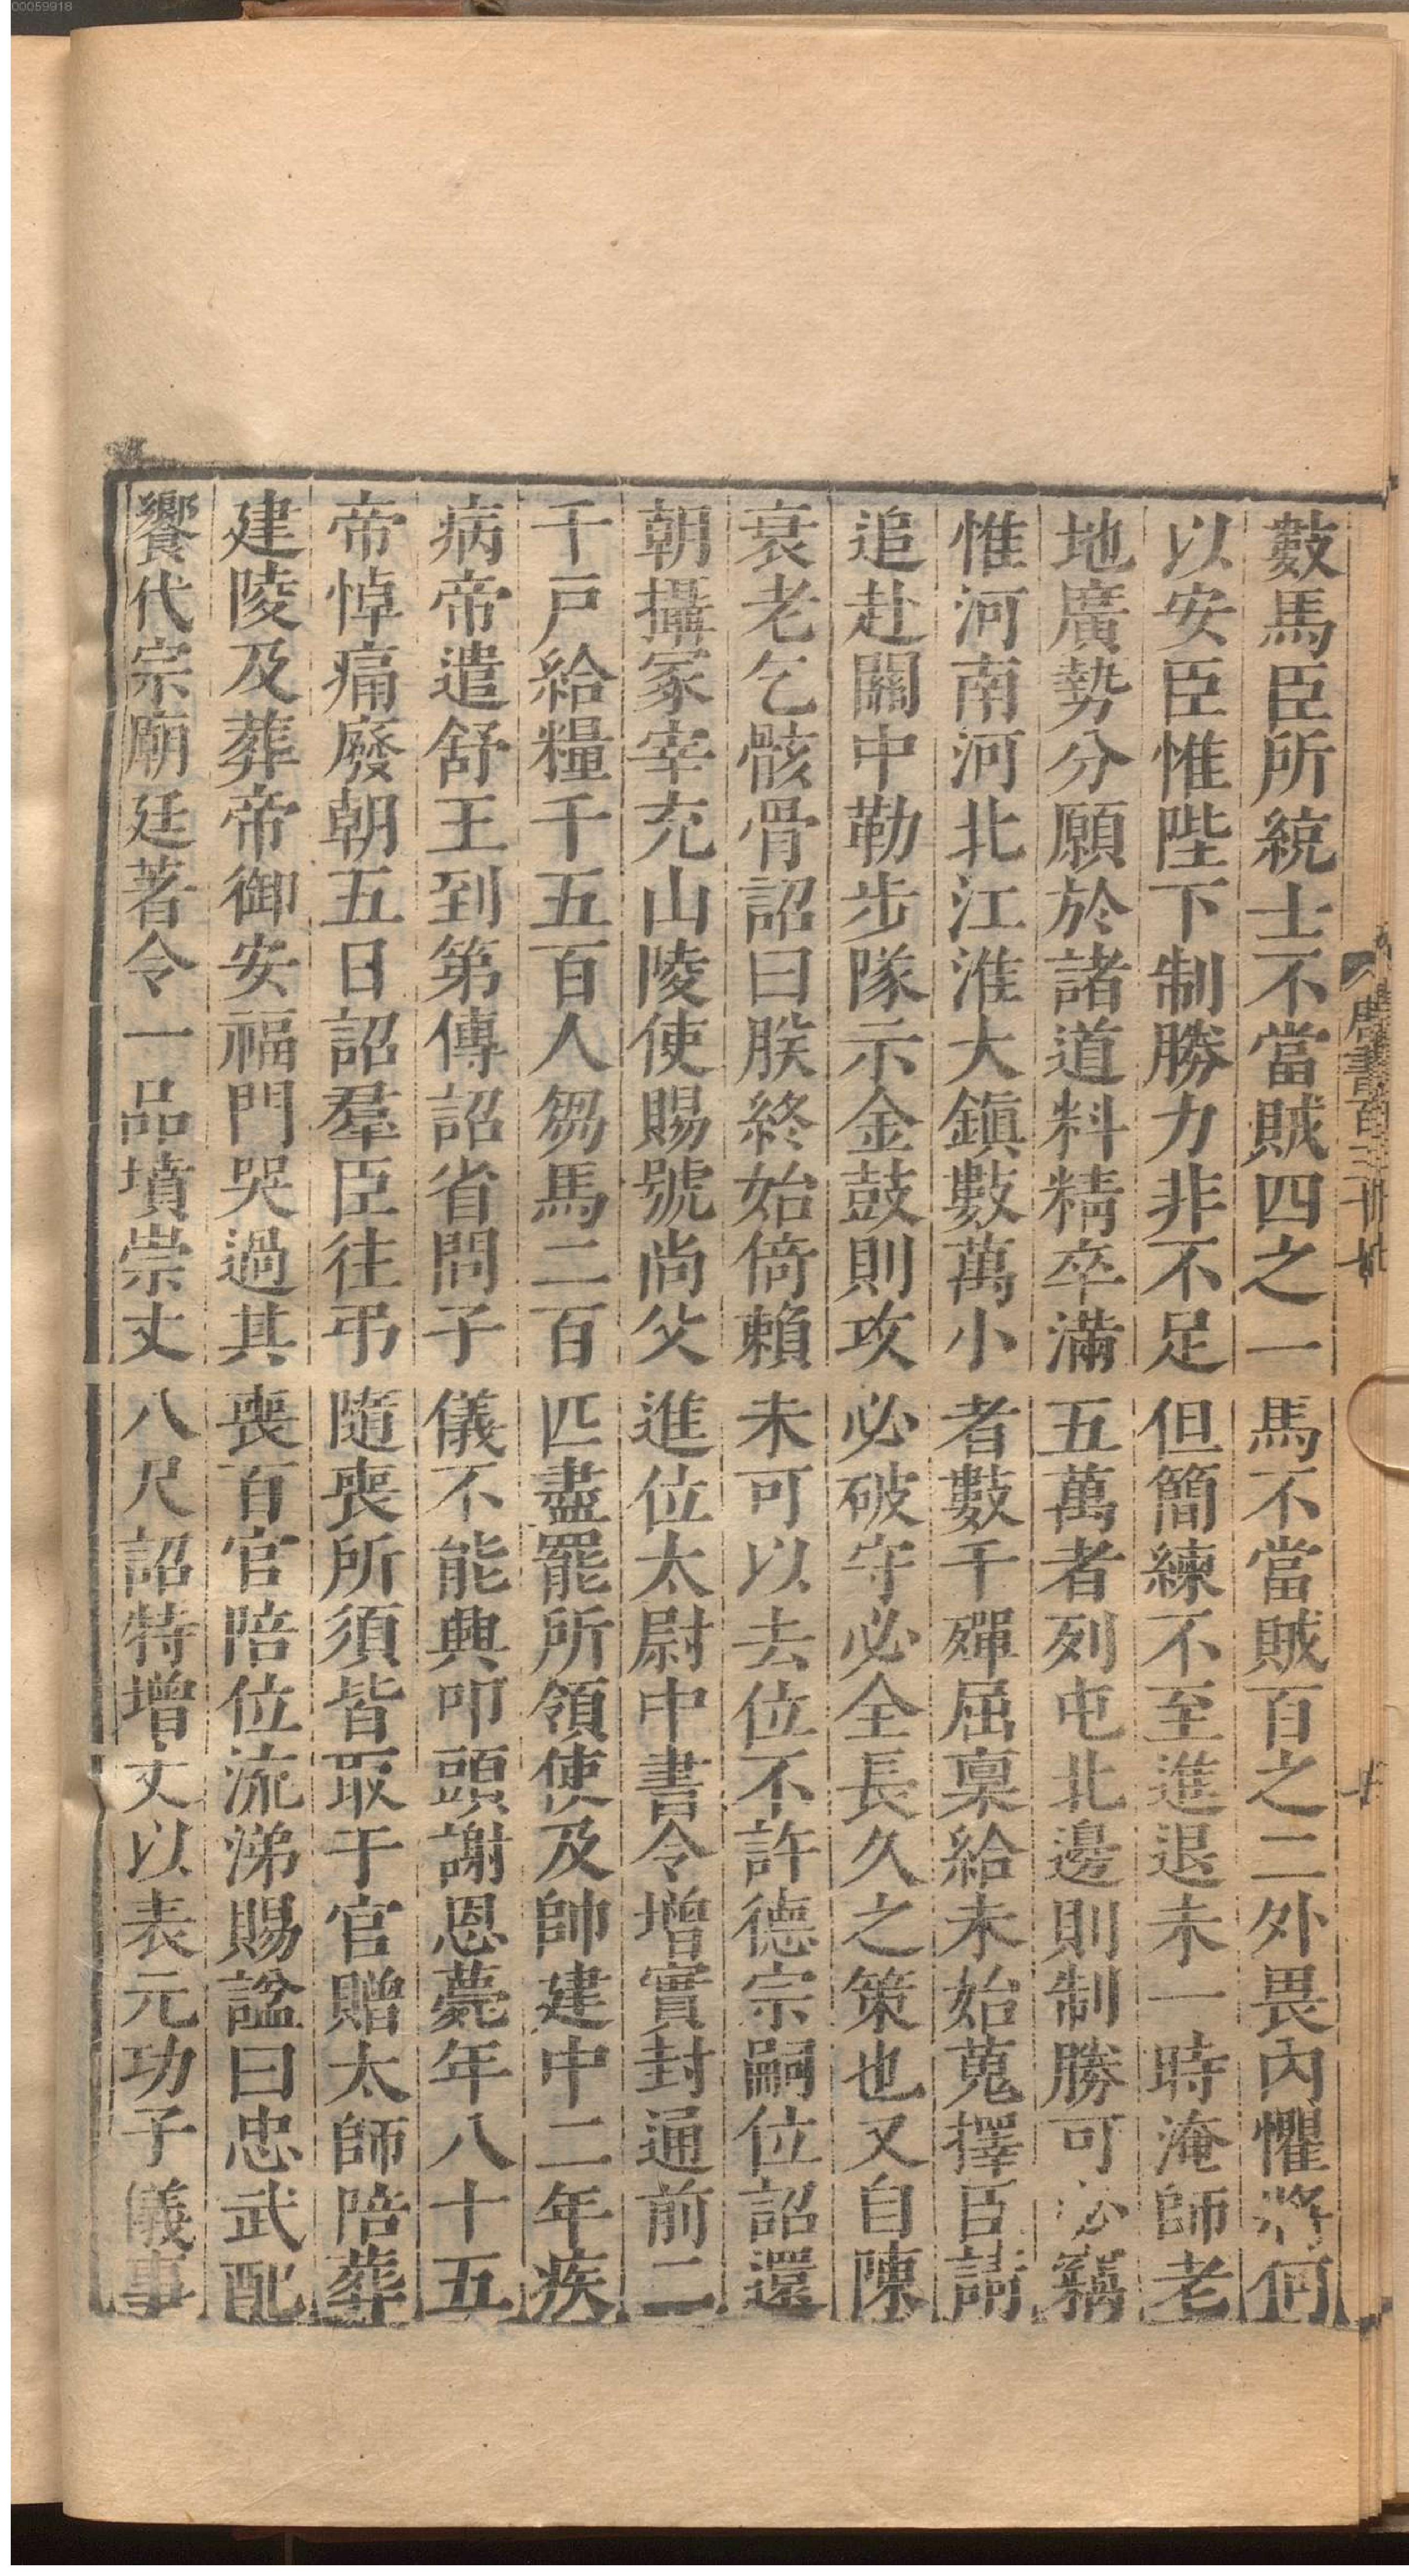 00059918
數馬臣所統士不當賊四之一馬不當賊百之二外畏內懼將何
以安臣惟陛下制勝力非不足但簡練不至進退未一時淹師老
地廣勢分願於諸道料精卒滿五萬者列屯北邊則制勝可必竊
惟河南河北江淮大鎭數萬小者數千殫屈稟給未始蒐擇臣請
追赴關中勒步隊示金鼓則攻必破守必全長久之策也又自陳
衰老乞骸骨詔曰朕終始倚賴未可以去位不許德宗嗣位詔還
朝攝冢宰充山陵使賜號尚父進位太尉中書令增實封通前二
千戸給糧千五百人芻馬二百匹盡罷所領使及帥建中二年疾
病帝遣舒王到第傳詔省問子儀不能興叩頭謝恩薨年八十五
帝悼痛廢朝五日詔羣臣往弔隨喪所須皆取于官贈太師陪葬
建陵及葬帝御安福門哭過其喪百官陪位流涕賜諡曰忠武配
饗代宗廟廷著令一品墳崇丈八尺詔特增丈以表元功子儀事